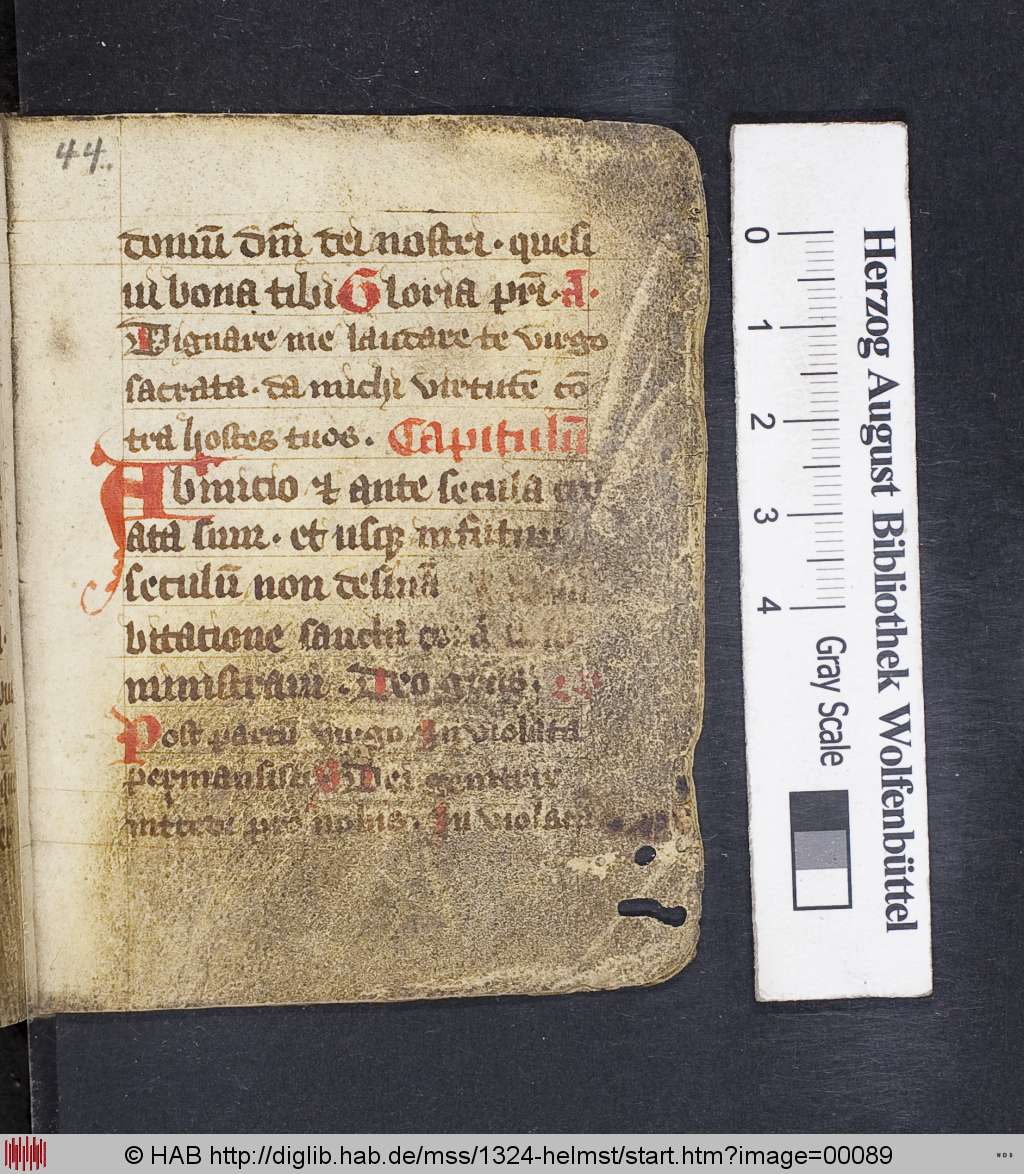 44.
domū dñi dei nostri · quesi
ui bona tibi Gloria pr̄i · A ·
Dignare me laudare te virgo
sacrata · da michi virtutē cō
tra hostes tuos · Capitulū
Ab inicio et ante secula
ata sum · et usq; in futurū
seculū non desinā
bitatione sancta
ministraui · Deo gr̄as ·
Post partū virgo Inviolata
permansisti Dei genitrix
intercede pro nobis · Inviolata
0
1
2
3
4
Gray Scale
Herzog August Bibliothek Wolfenbüttel
© HAB http://diglib.hab.de/mss/1324-helmst/start.htm?image=00089